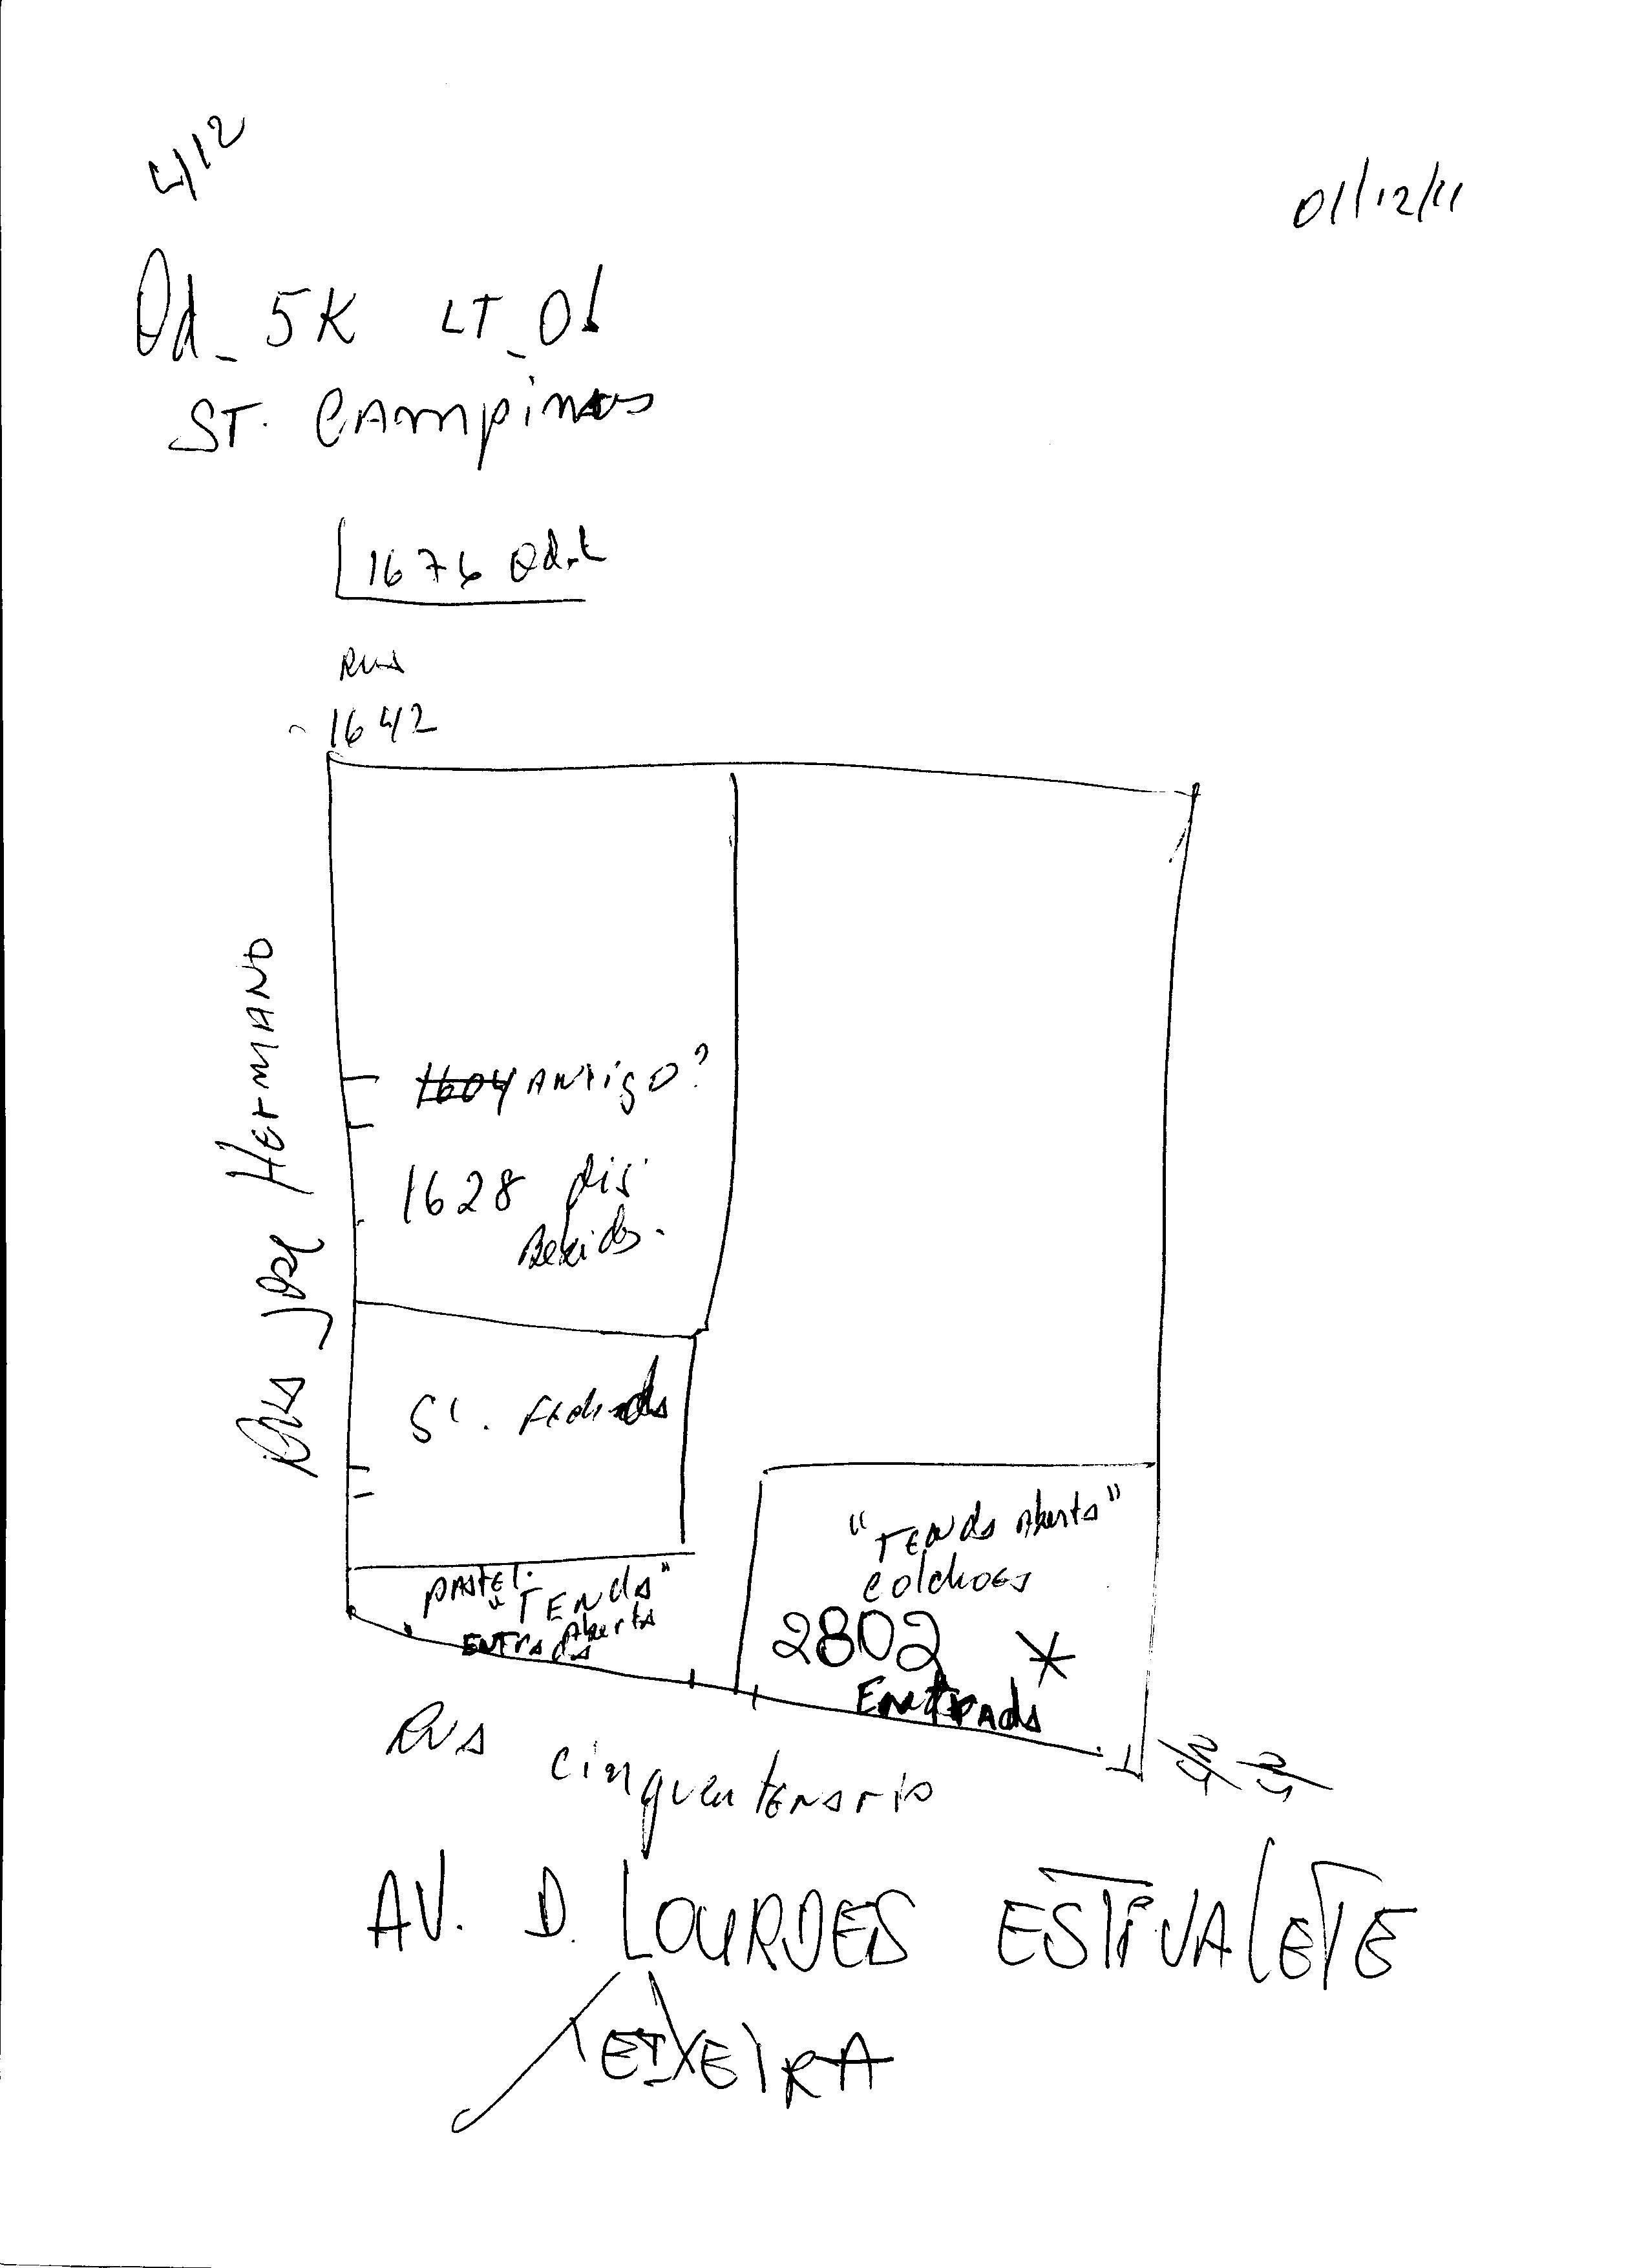 412
01/12/11
Qd_ 5K LT_01
ST. CAMPINAS
1676 Qd.L
RUA
1642
1604 ANTIGO?
1628 Dis
Bebidas.
Rua José Hermano
SL. Fechada
PASTEL.
"TENDA
Aberta"
ENTRADA
"TENDA Aberta"
COLCHOES
2802 *
ENTRADA
RUA cinquentenario
AV. D. LOURDES ESTIVALETE
TEIXEIRA